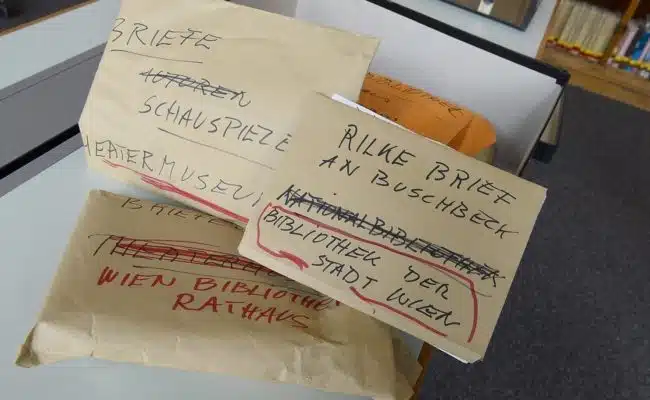 BRIEFE
AUTOREN
SCHAUSPIELE
HEATERMUSEU
RILKE BRIEF
AN BUSCHBECK
NATIONALBIBLIOTHEK
BIBLIOTHEK DER
STADT WIEN
BRIEFE
WIEN BIBLIOTHE
RATHAUS